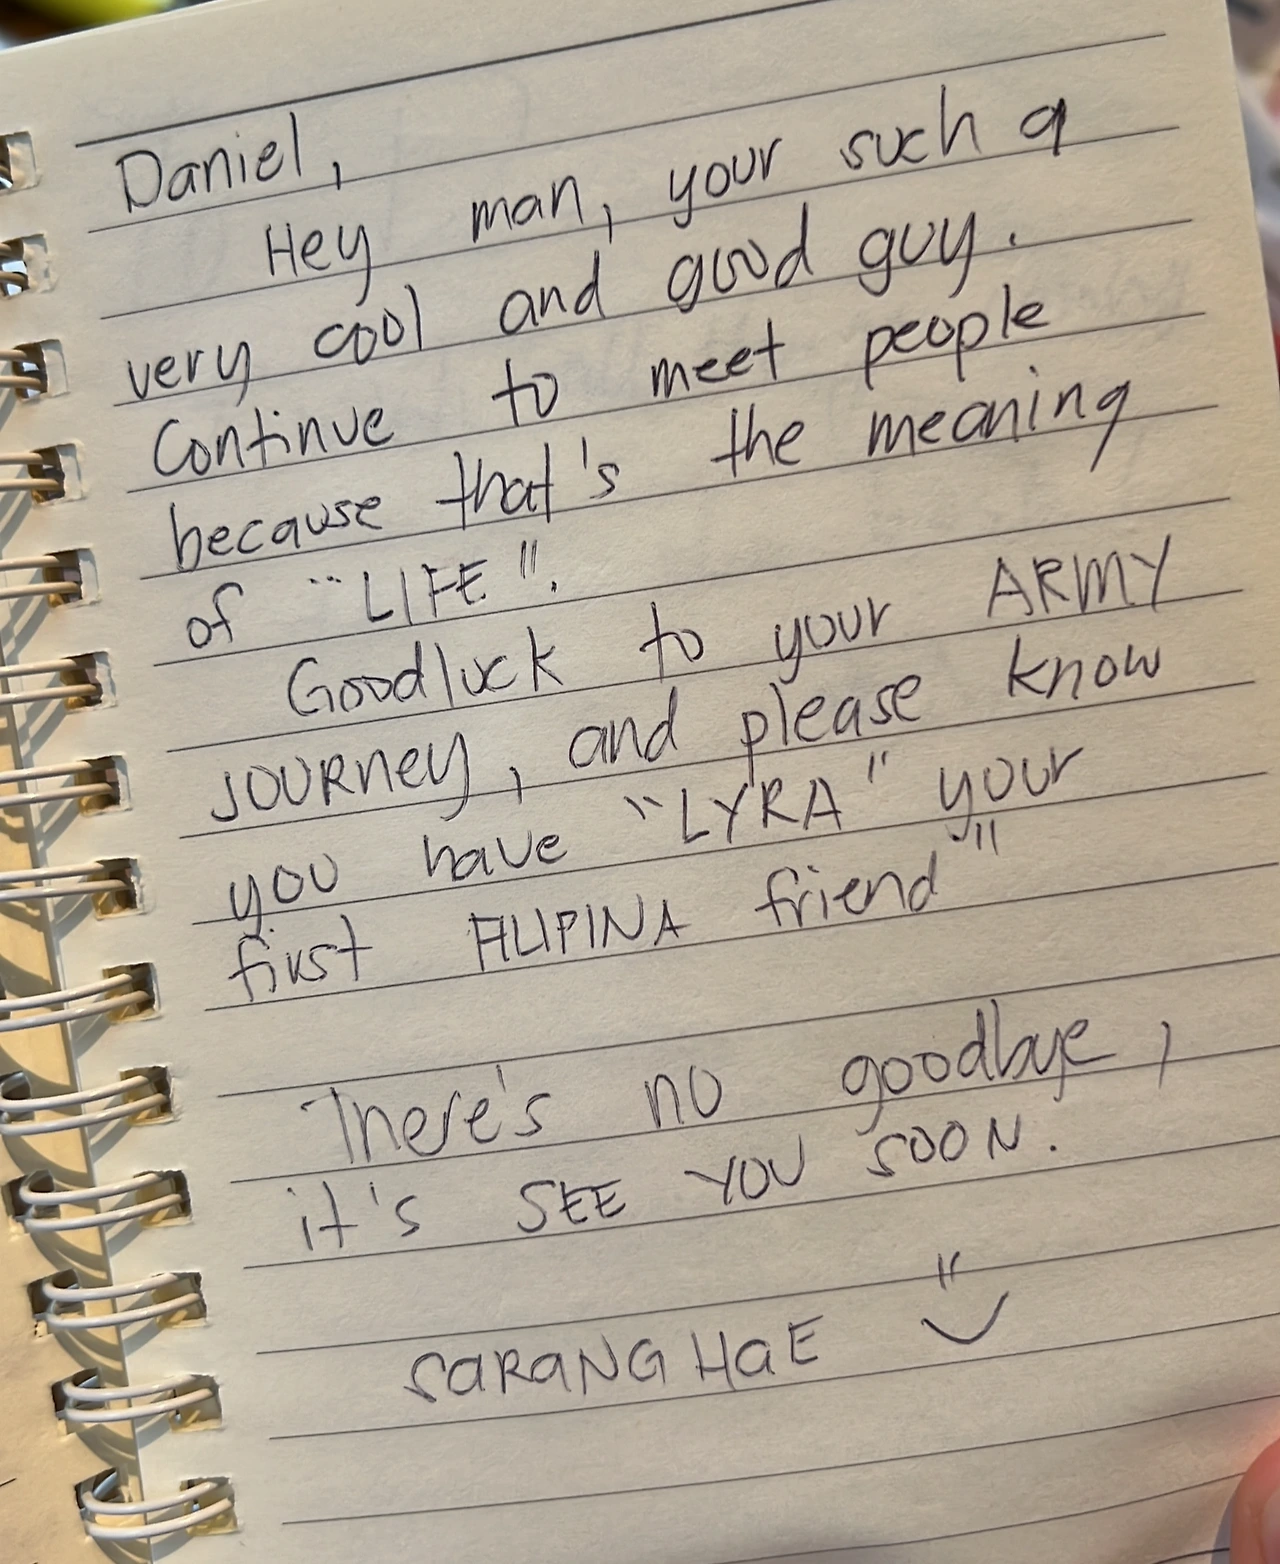 Daniel,
Hey man, your such a
very cool and good guy.
Continue to meet people
because that's the meaning
of "LIFE".
Goodluck to your ARMY
JOURney, and please know
you have "LYRA" your
first FILIPINA friend"
There's no goodbye,
it's SEE YOU SOON.
SaRaNG HaE